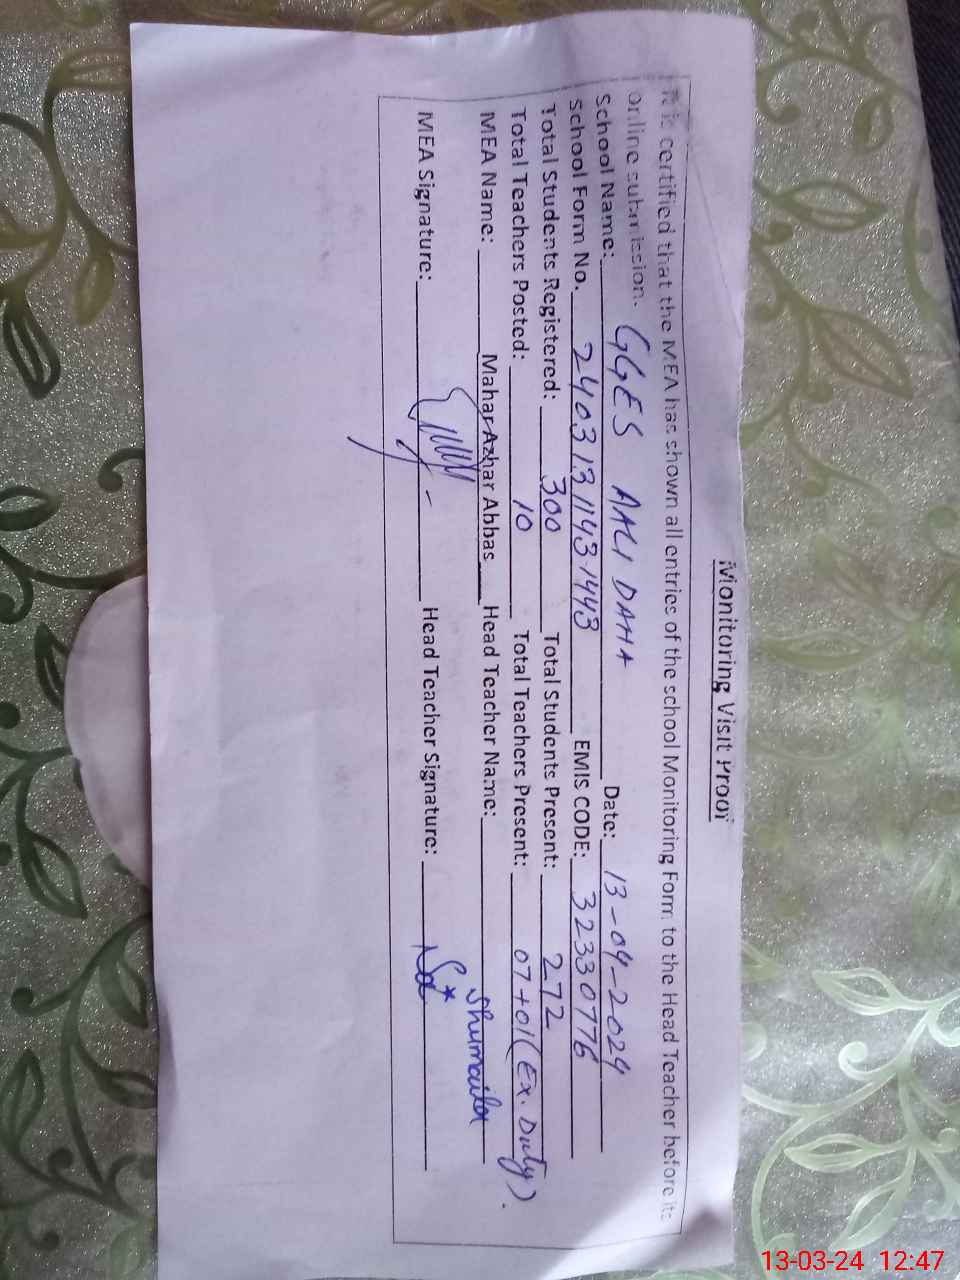 Monitoring Visit Proof
It is certified that the MEA has shown all entries of the school Monitoring Form to the Head Teacher before its
online submission.
School Name: GGES AALI DAHA Date: 13-04-2024
School Form No. 2403131143-1443 EMIS CODE: 32330776
Total Students Registered: 300 Total Students Present: 272
Total Teachers Posted: 10 Total Teachers Present: 07+01(Ex. Duty).
MEA Name: Mahar Azhar Abbas Head Teacher Name: Shumaila
MEA Signature: Head Teacher Signature:
13-03-24 12:47